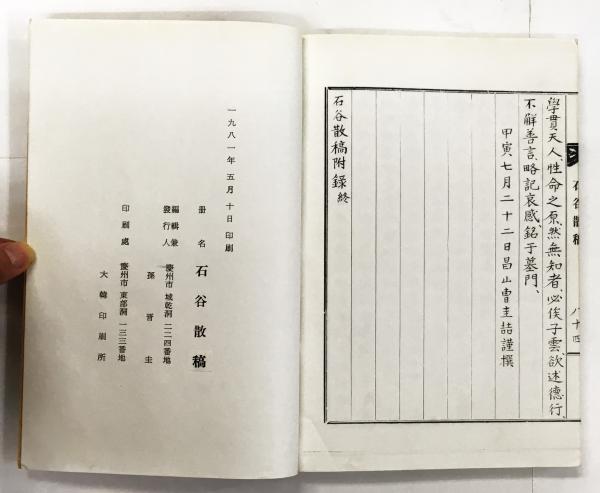 石谷散稿
八十四
學貫天人、性命之原、然無知者、必俟子雲、欲述德行、
不解善言、略記哀感、銘于墓門、
甲寅七月二十二日昌山曺圭喆謹撰
石谷散稿附錄終
一九八一年 五月 十日 印刷
冊名 石谷散稿
編輯兼
發行人 慶州市 城乾洞 二二四番地
孫晋圭
印刷處 慶州市 東部洞 一三三番地
大韓印刷所